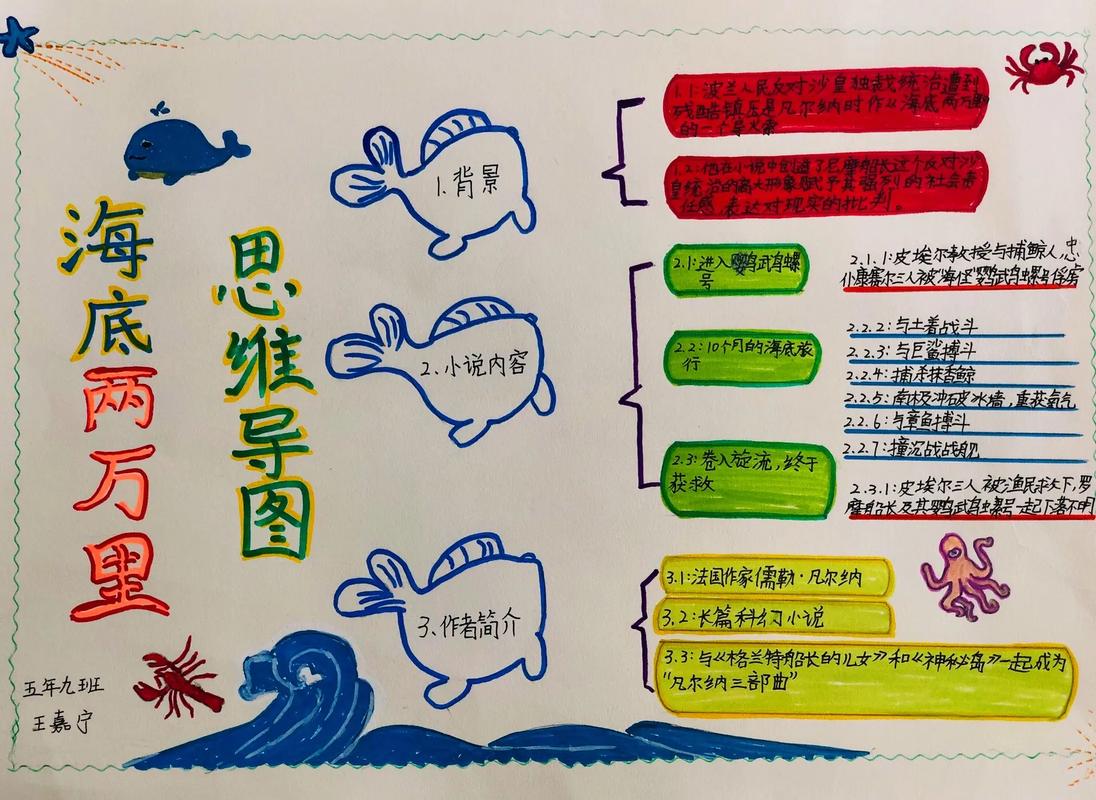 海底两万里
思维导图
1.背景
1.1:波兰人民反对沙皇独裁统治遭到
残酷镇压是凡尔纳时作《海底两万里》
的一个导火索
1.2:他在小说中创造了尼摩船长这个反对沙
皇统治的高大形象赋予其强烈的社会责
任感,表达对现实的批判。
2.小说内容
2.1:进入鹦鹉螺
号
2.1.1:皮埃尔教授与捕鲸人,忠
仆康塞尔三人被"海怪"鹦鹉螺号俘虏
2.2:10个月的海底旅
行
2.2.2:与土着战斗
2.2.3:与巨鲨搏斗
2.2.4:捕杀抹香鲸
2.2.5:南极冲破冰墙,重获氧气
2.2.6:与章鱼搏斗
2.2.7:撞沉战战舰
2.3:卷入旋流,终于
获救
2.3.1:皮埃尔三人被渔民救下,罗
摩船长及其鹦鹉螺号一起下落不明
3、作者简介
3.1:法国作家儒勒·凡尔纳
3.2:长篇科幻小说
3.3:与《格兰特船长的儿女》和《神秘岛》一起成为
"凡尔纳三部曲"
五年九班
王嘉宁